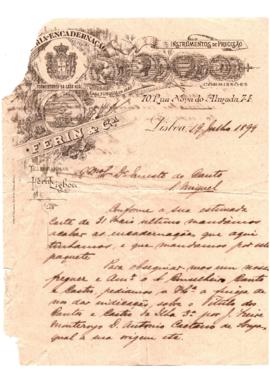 RIA-ENCADERNAÇÃ
INSTRUMENTOS DE PRECIZÃO
FORNECEDORES DA CASA REAL
COMMISSÕES
70, Rua Nova do Almada, 74
FERIN & Cª
Lisboa, 19 Julho 1894
Ernesto do Canto
S. Miguel
Conforme a sua estimada
carta de 31 Maio ultimo mandamos
acabar as encadernações que aqui
tinhamos, e que mandamos por este
paquete
Para obsequiar mos um nosso
freguez e Amº o Conselheiro Canto
e Castro, pedimos a
nos dar indicações, sobre o Titulo dos
Canto e Castro da Ilha 3ª por J. Freire
Monterroyo D. Antonio Caetano de Souza,
qual a sua origem etc.